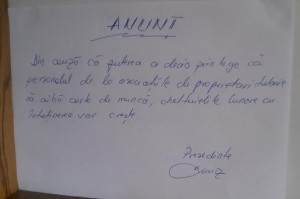 ANUNȚ
Din cauză că puterea a decis prin lege că
personalul de la asociațiile de proprietari trebuie
să aibă carte de muncă, cheltuielile lunare cu
întreținerea vor crește.
Președinte